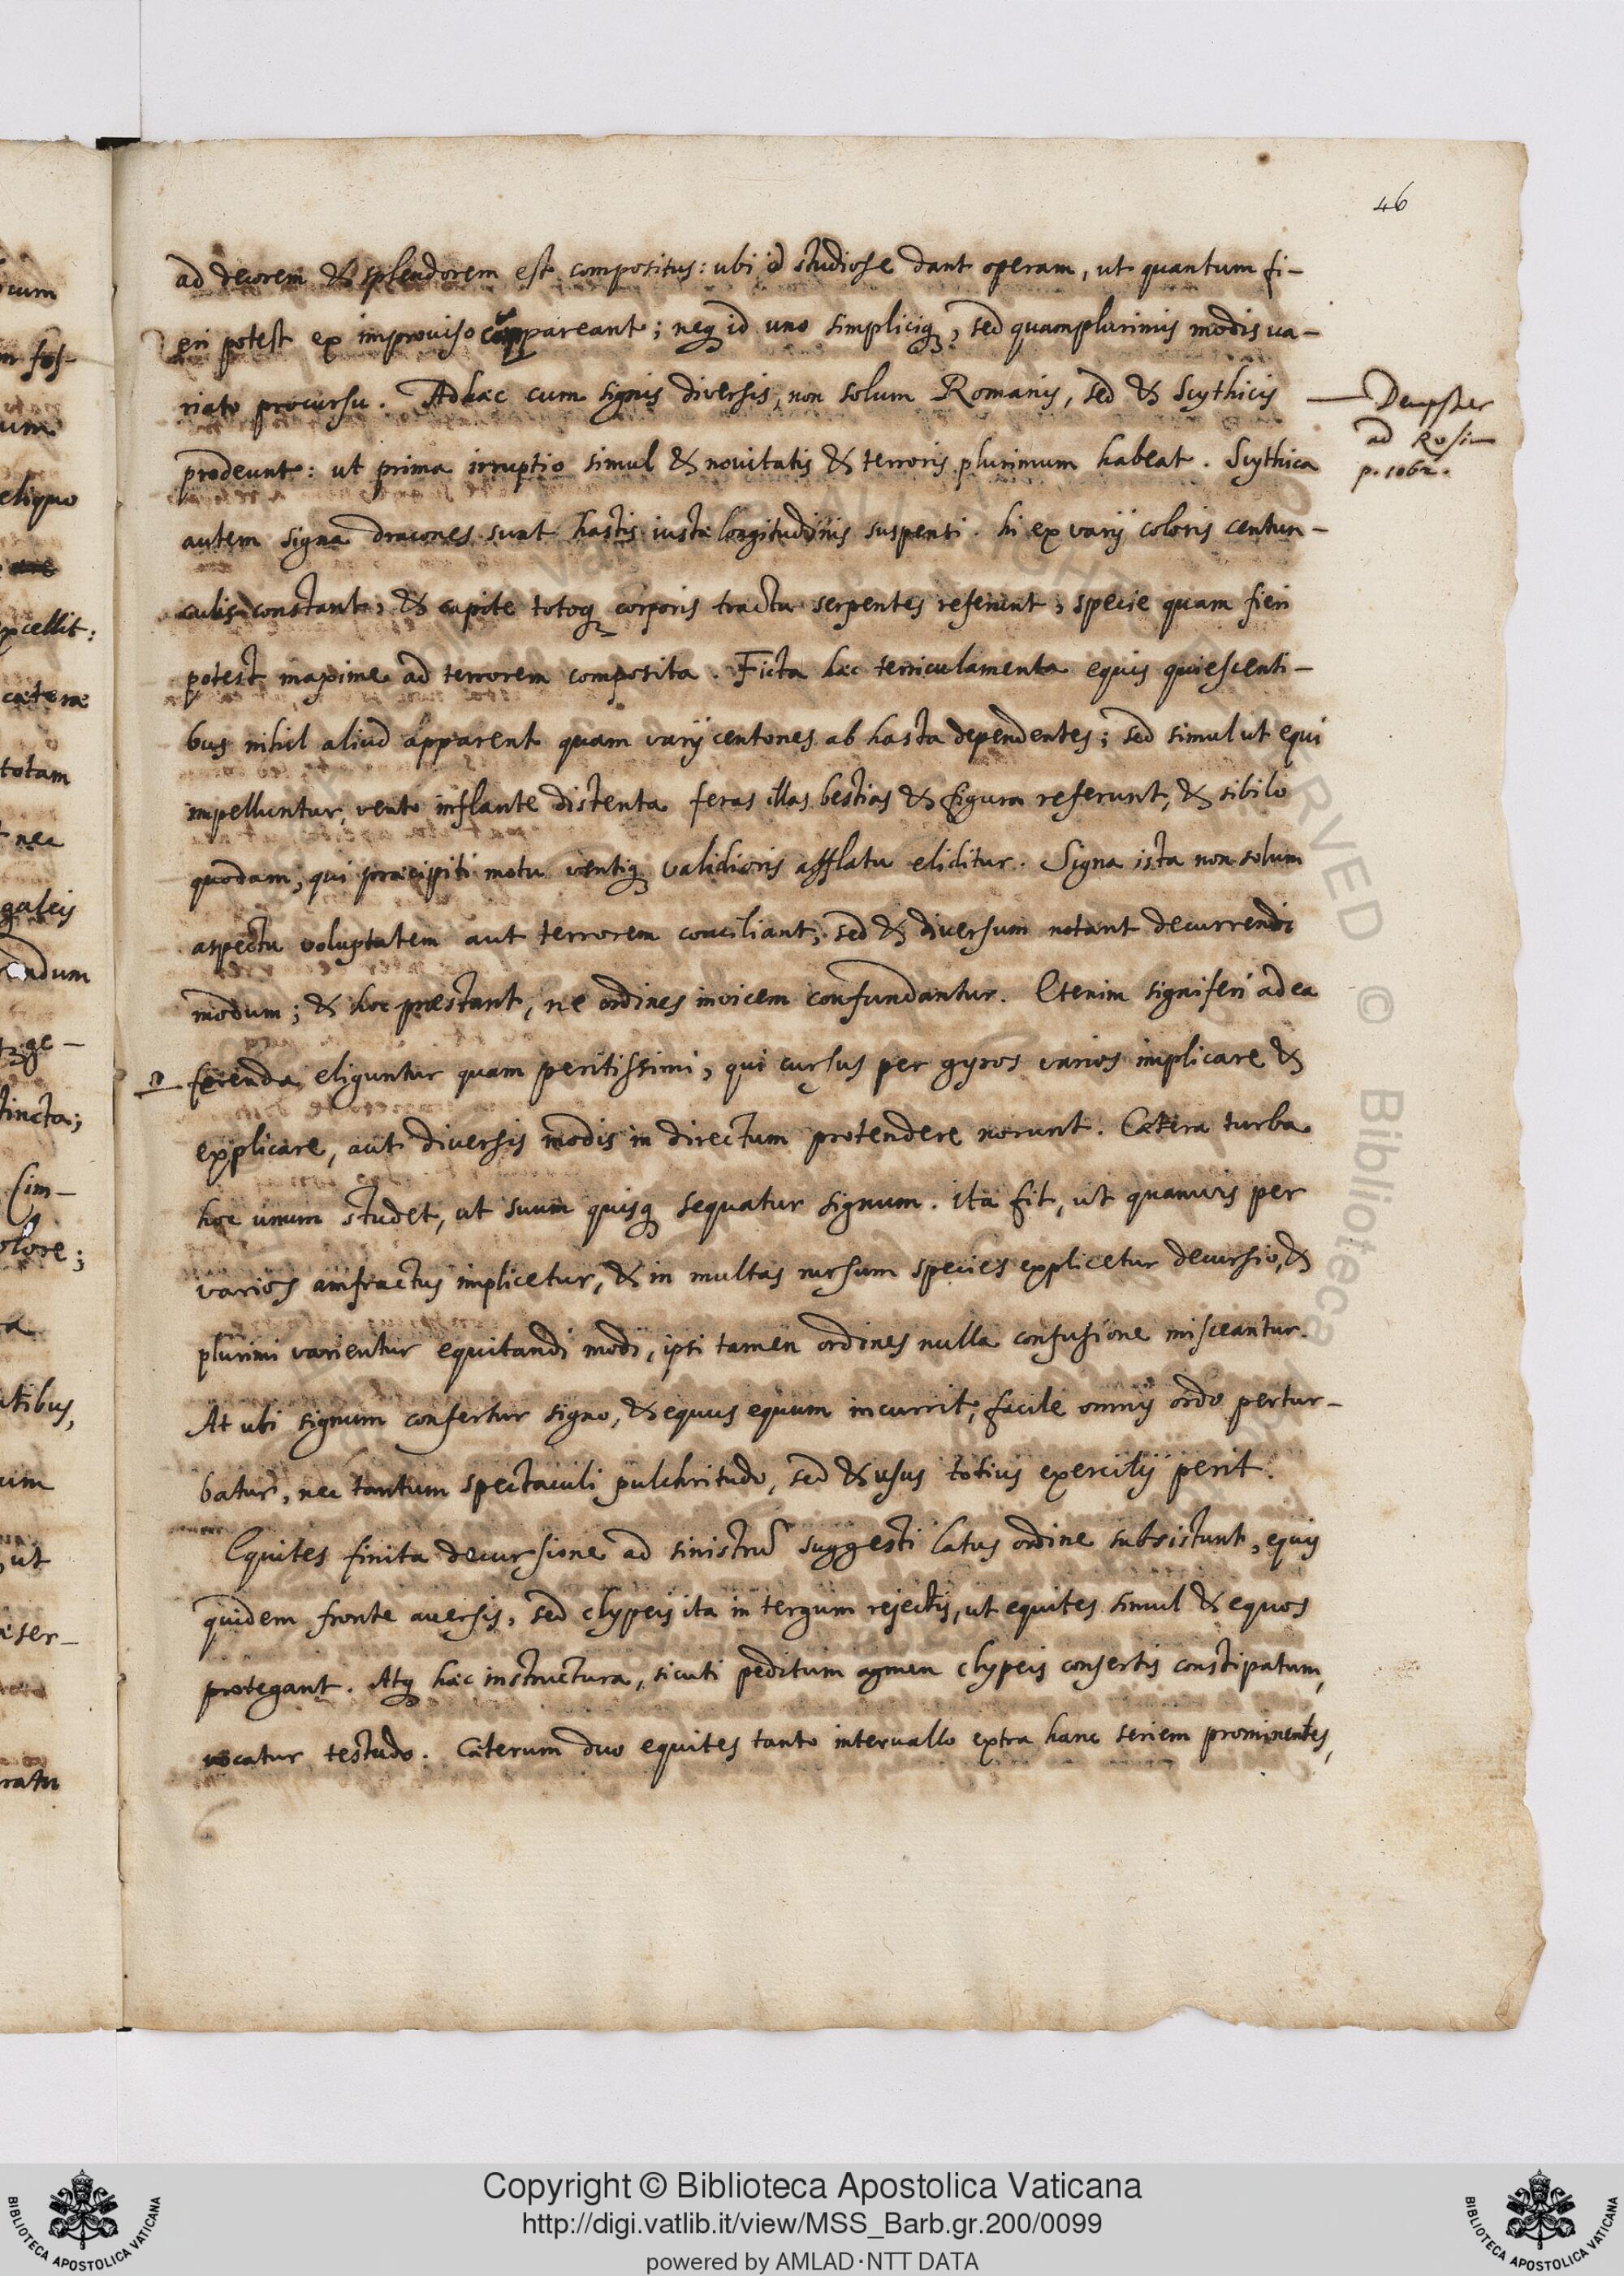 46
ad decorem & splendorem est compositus: ubi id studiose dant operam, ut quantum fi-
eri potest ex improviso compareant; neq id uno simpliciq, sed quamplurimis modis va-
riato procursu. Ad hæc cum signis diversis, non solum Romanis, sed & Scythicis
Dempster
ad Rosin
p. 1062.
prodeunt: ut prima irruptio simul & novitatis & terroris plurimum habeat. Scythica
autem signa dracones sunt hastis iustæ longitudinis suspensi. hi ex varij coloris centun-
culis constant, & capite totoq corporis tractu serpentes referunt, specie quam fieri
potest maxime ad terrorem composita. Ficta hæc terriculamenta equis quiescenti-
bus nihil aliud apparent quam varij centones ab hasta dependentes; sed simul ut equi
impelluntur, vento inflante distenta feras illas bestias & figura referunt, & sibilo
quodam, qui præcipiti motu ventiq validioris afflatu eliditur. Signa ista non solum
aspectu voluptatem aut terrorem conciliant, sed & diversum notant decurrendi
modum; & hoc præstant, ne ordines invicem confundantur. Etenim signiferi ad ea
ferenda eliguntur quam peritissimi, qui cursus per gyros varios implicare &
explicare, aut diversis modis in directum protendere norunt. Cætera turba
hoc unum studet, ut suum quisq sequatur signum. ita fit, ut quamvis per
varios amfractus implicetur, & in multas rursum species explicetur decursio, &
plurimi varientur equitandi modi, ipsi tamen ordines nulla confusione misceantur.
At ubi signum confertur signo, & equus equum incurrit, facile omnis ordo pertur-
batur, nec tantum spectaculi pulchritudo, sed & usus totius exercitij perit.
Equites finita decursione ad sinistrū suggesti latus ordine subsistunt, equis
quidem fronte aversis, sed clypeis ita in tergum rejectis, ut equites simul & equos
protegant. Atq hæc instructura, sicuti peditum agmen clypeis consertis constipatum,
vocatur testudo. Cæterum duo equites tanto intervallo extra hanc seriem prominentes,
Copyright © Biblioteca Apostolica Vaticana
http://digi.vatlib.it/view/MSS_Barb.gr.200/0099
powered by AMLAD·NTT DATA
BIBLIOTECA APOSTOLICA VATICANA
BIBLIOTECA APOSTOLICA VATICANA